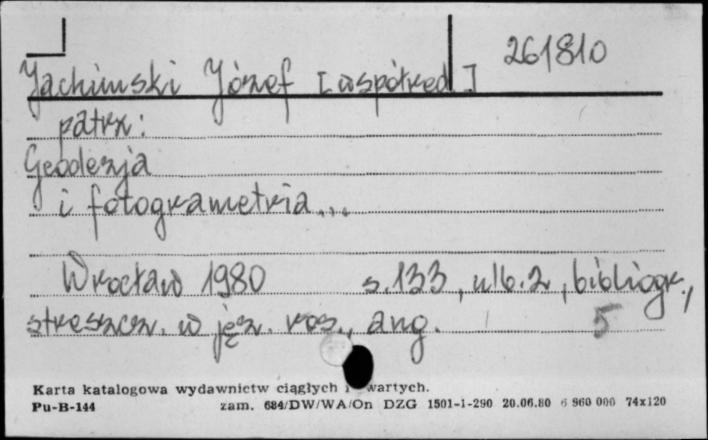 Jachimski Józef [współred.] 261810
patrz:
Geodezja
i fotogrametria...
Wrocław 1980 s. 133, nlb. 2, bibliogr.,
streszcz. w jęz. ros., ang. 5
Karta katalogowa wydawnictw ciągłych i wartych.
Pu-B-144 zam. 684/DW/WA/On DZG 1501-1-290 20.06.80 6 960 000 74x120